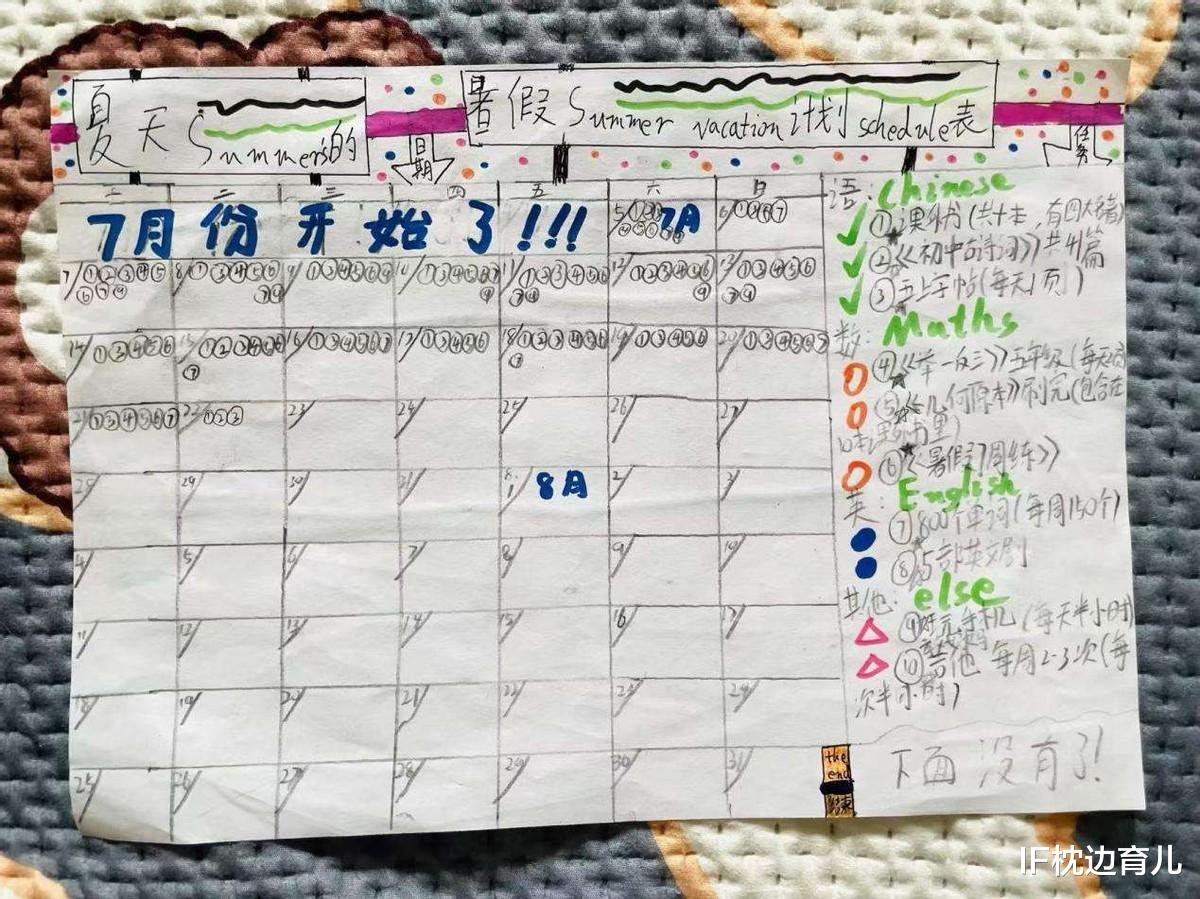 夏天 Summer's的
日期
暑假 Summer vacation 计划 schedule表
任务
一 二 三 四 五 六 日
7月份开始了!!!
5/ 7月 6/①⑤⑥⑦
7/ 8/ 9/ 10/ 11/ 12/ 13/
14/ 15/ 16/ 17/ 18/ 19/ 20/
21/①③④⑤⑥⑦ 22/①②③ 23/ 24/ 25/ 26/ 27/
28/ 29/ 30/ 31/ 8.1/ 8月 2/ 3/
4/ 5/ 6/ 7/ 8/ 9/ 10/
11/ 12/ 13/ 14/ 15/ 16/ 17/
18/ 19/ 20/ 21/ 22/ 23/ 24/
25/ 26/ 27/ 28/ 29/ 30/ 31/
语: Chinese
①课外书(共十本,有四大名著)
②《初中古诗词》共41篇
③五上字帖(每天1页)
数: Maths
④《举一反三》五年级(每天
⑤《几何原本》刷完(包含在
10本课外书里)
⑥《暑假7周练》
英: English
⑦800个单词(每周150个)
⑧5部英文剧
其他: else
⑨手机(每天半小时)
⑩吉他 每周2-3次(每
次半小时)
the end
结束
下面没有了!
IF枕边育儿